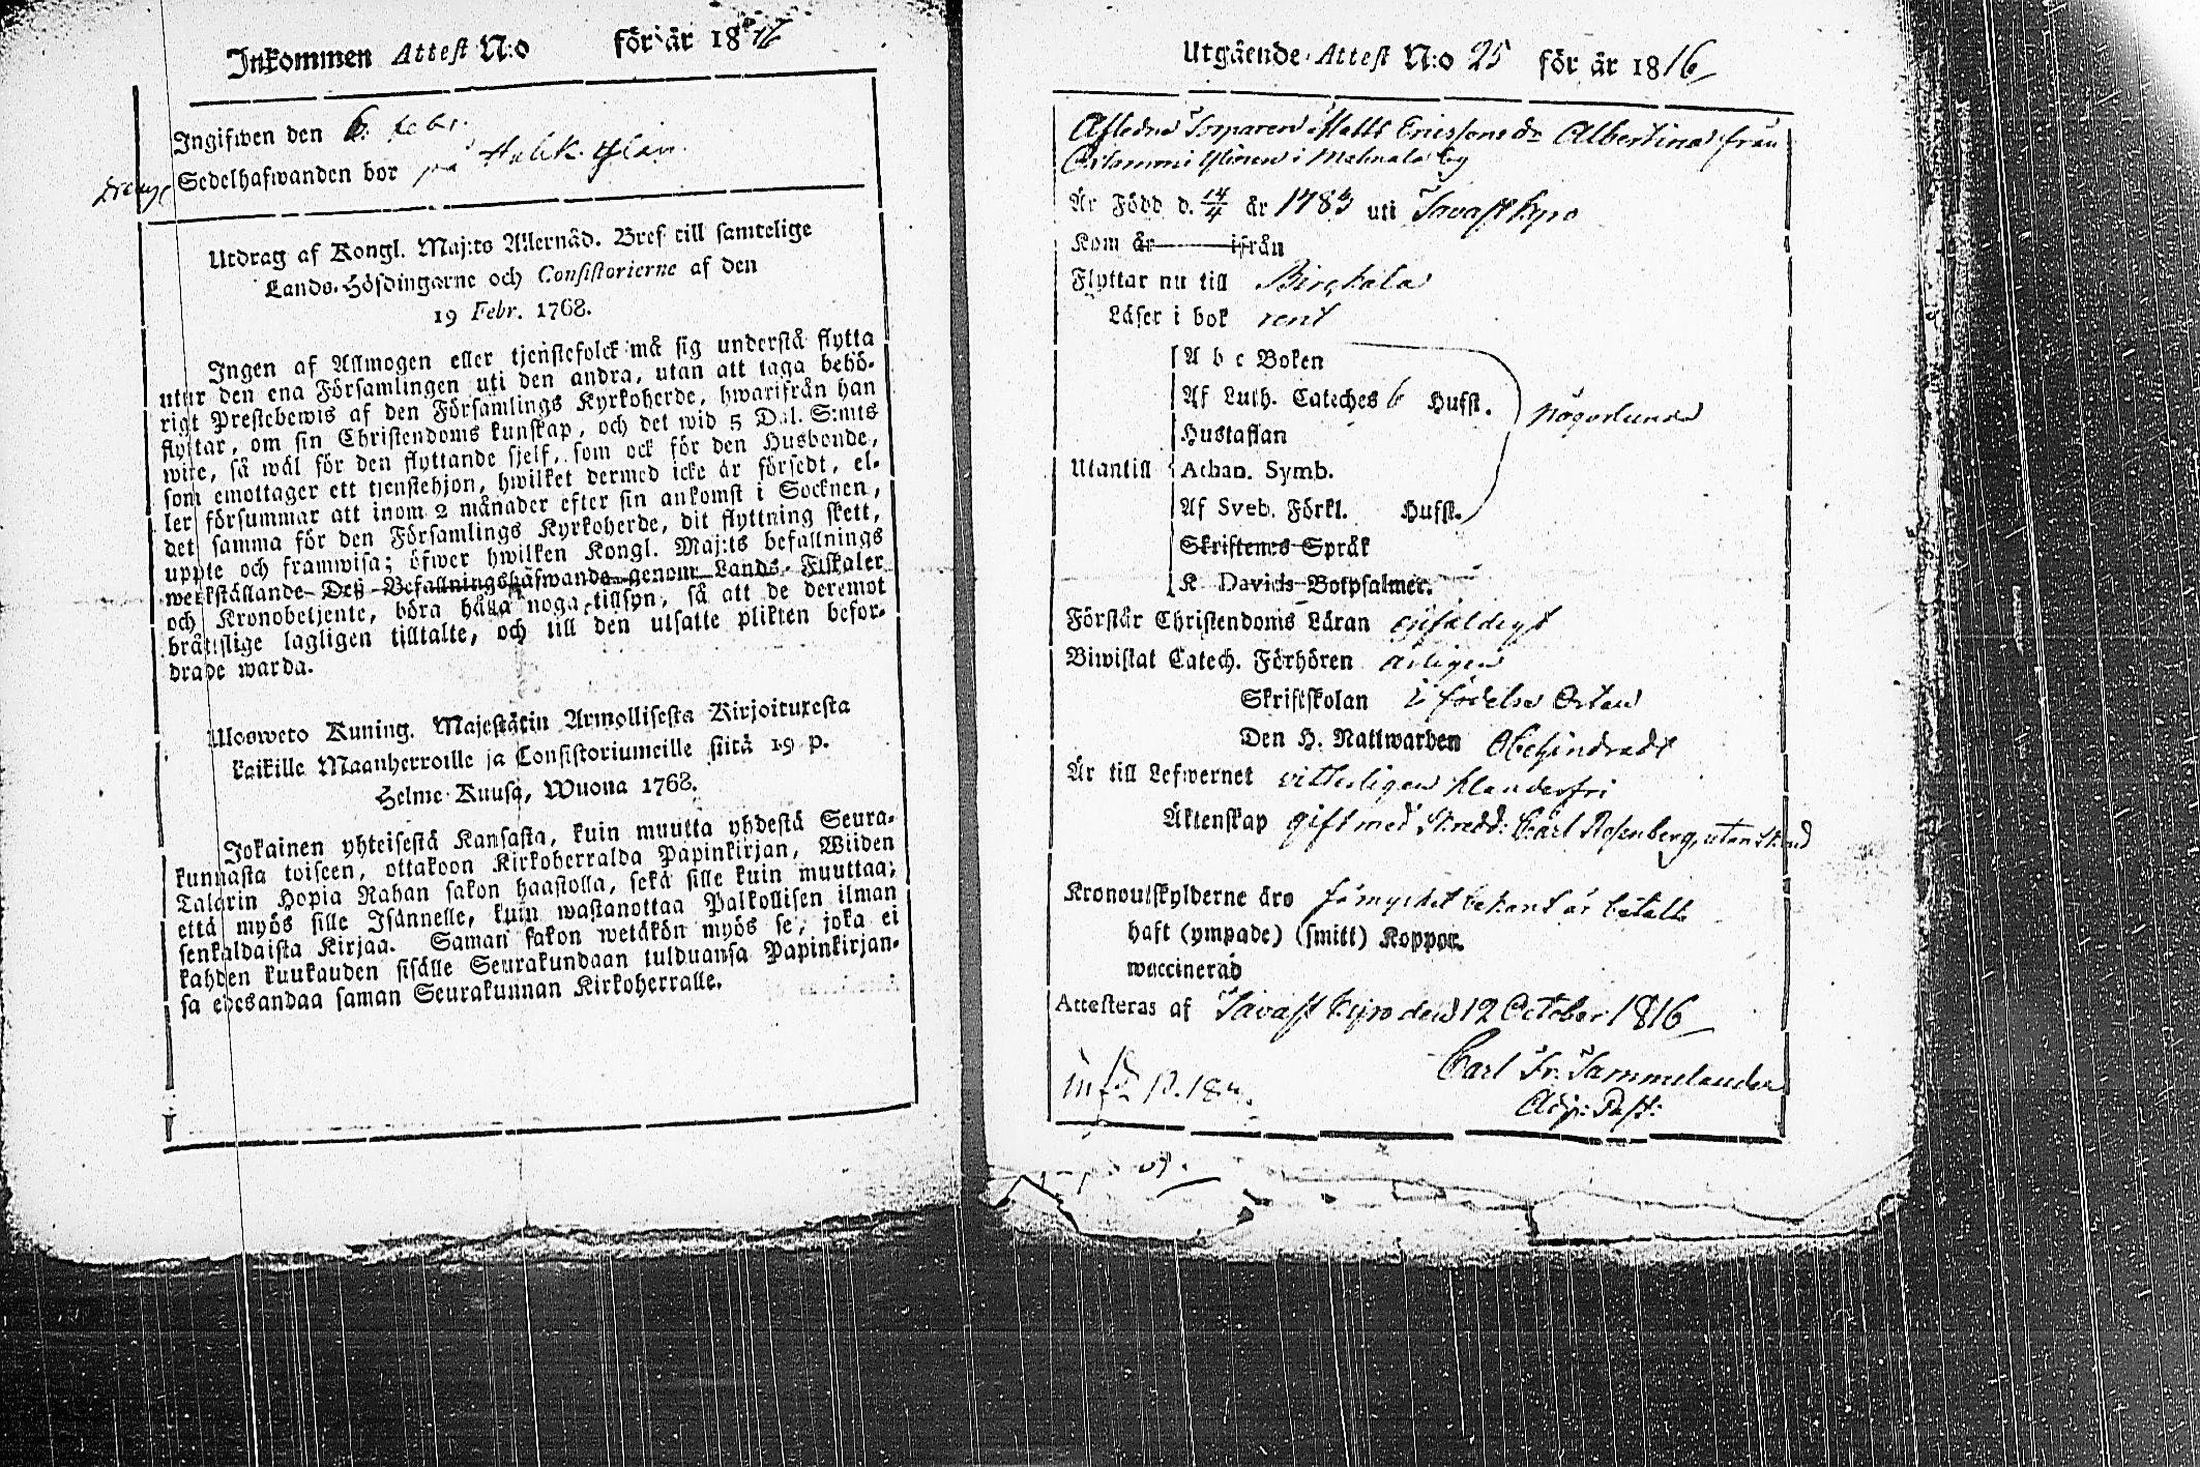 Inkommen Attest N:o för år 1816
Ingifwen den 6. febr.
Sedelhafwanden bor på
Utdrag af Kongl. Maj:ts Allernåd. Bref till samtelige
Lands-Höfdingarne och Consistorierne af den
19 Febr. 1768.
Ingen af Allmogen eller tjenstefolck må sig understå flytta
utur den ena Församlingen uti den andra, utan att taga behö-
rigt Prestebewis af den Församlings Kyrkoherde, hwarifrån han
flyttar, om sin Christendoms kunskap, och det wid 5 Dal. S:mts
wite, så wäl för den flyttande sjelf, som ock för den Husbonde,
som emottager ett tjenstehjon, hwilket dermed icke är försedt, el-
ler försummar att inom 2 månader efter sin ankomst i Socknen,
det samma för den Församlings Kyrkoherde, dit flyttning skett,
uppte och framwisa; öfwer hwilken Kongl. Maj:ts befallnings
werkställande Deß Befallningshafwande genom Lands-Fiskaler
och Kronobetjente, böra hålla noga tillsyn, så att de deremot
bråtslige lagligen tilltalte, och till den utsatte plikten befor-
drade warda.
Ulosweto Kuning. Majestätin Armollisesta Kirjoituxesta
kaikille Maanherroille ja Consistoriumeille siitä 19 p.
Helme-Kuusa, Wuona 1768.
Jokainen yhteisestä Kansasta, kuin muutta yhdestä Seura-
kunnasta toiseen, ottakoon Kirkoherralda Papinkirjan, Wiiden
Talarin Hopia Rahan sakon haastolla, sekä sille kuin muuttaa;
että myös sille Isännelle, kuin wastanottaa Palkollisen ilman
senkaldaista Kirjaa. Saman sakon wetäkön myös se, joka ei
kahden kuukauden sisälle Seurakundaan tulduansa Papinkirjan-
sa edesandaa saman Seurakunnan Kirkoherralle.
Utgående Attest N:o 25 för år 1816
Afledne Torparen Matts Ericssons dr Albertina från
Ylinen i Mahnala by
Är Född d. 14/4 år 1783 uti Tavastkyro
Kom år ifrån
Flyttar nu till Birckala
Läser i bok rent
A b c Boken
Af Luth. Cateches 6 Hufst. någorlunda
Hustaflan
Utantill Athan. Symb.
Af Sveb. Förkl. Hufst.
Skriftenes Språk
K. Davids Botpsalmer.
Förstår Christendoms Läran enfaldigt
Biwistat Catech. Förhören årligen
Skriftskolan i födelse Orten
Den H. Nattwarden Obehindradt
Är till Lefwernet vitterligen klanderfri
Äktenskap gift med Skredd: Carl Rosenberg, utan
Kronoutskylderne äro så mycket bekant är betalte
haft (ympade) (smitt) Koppor.
waccinerad
Attesteras af Tavastkyro den 12 October 1816
Carl Fr. Tammelander
Adj: Past: